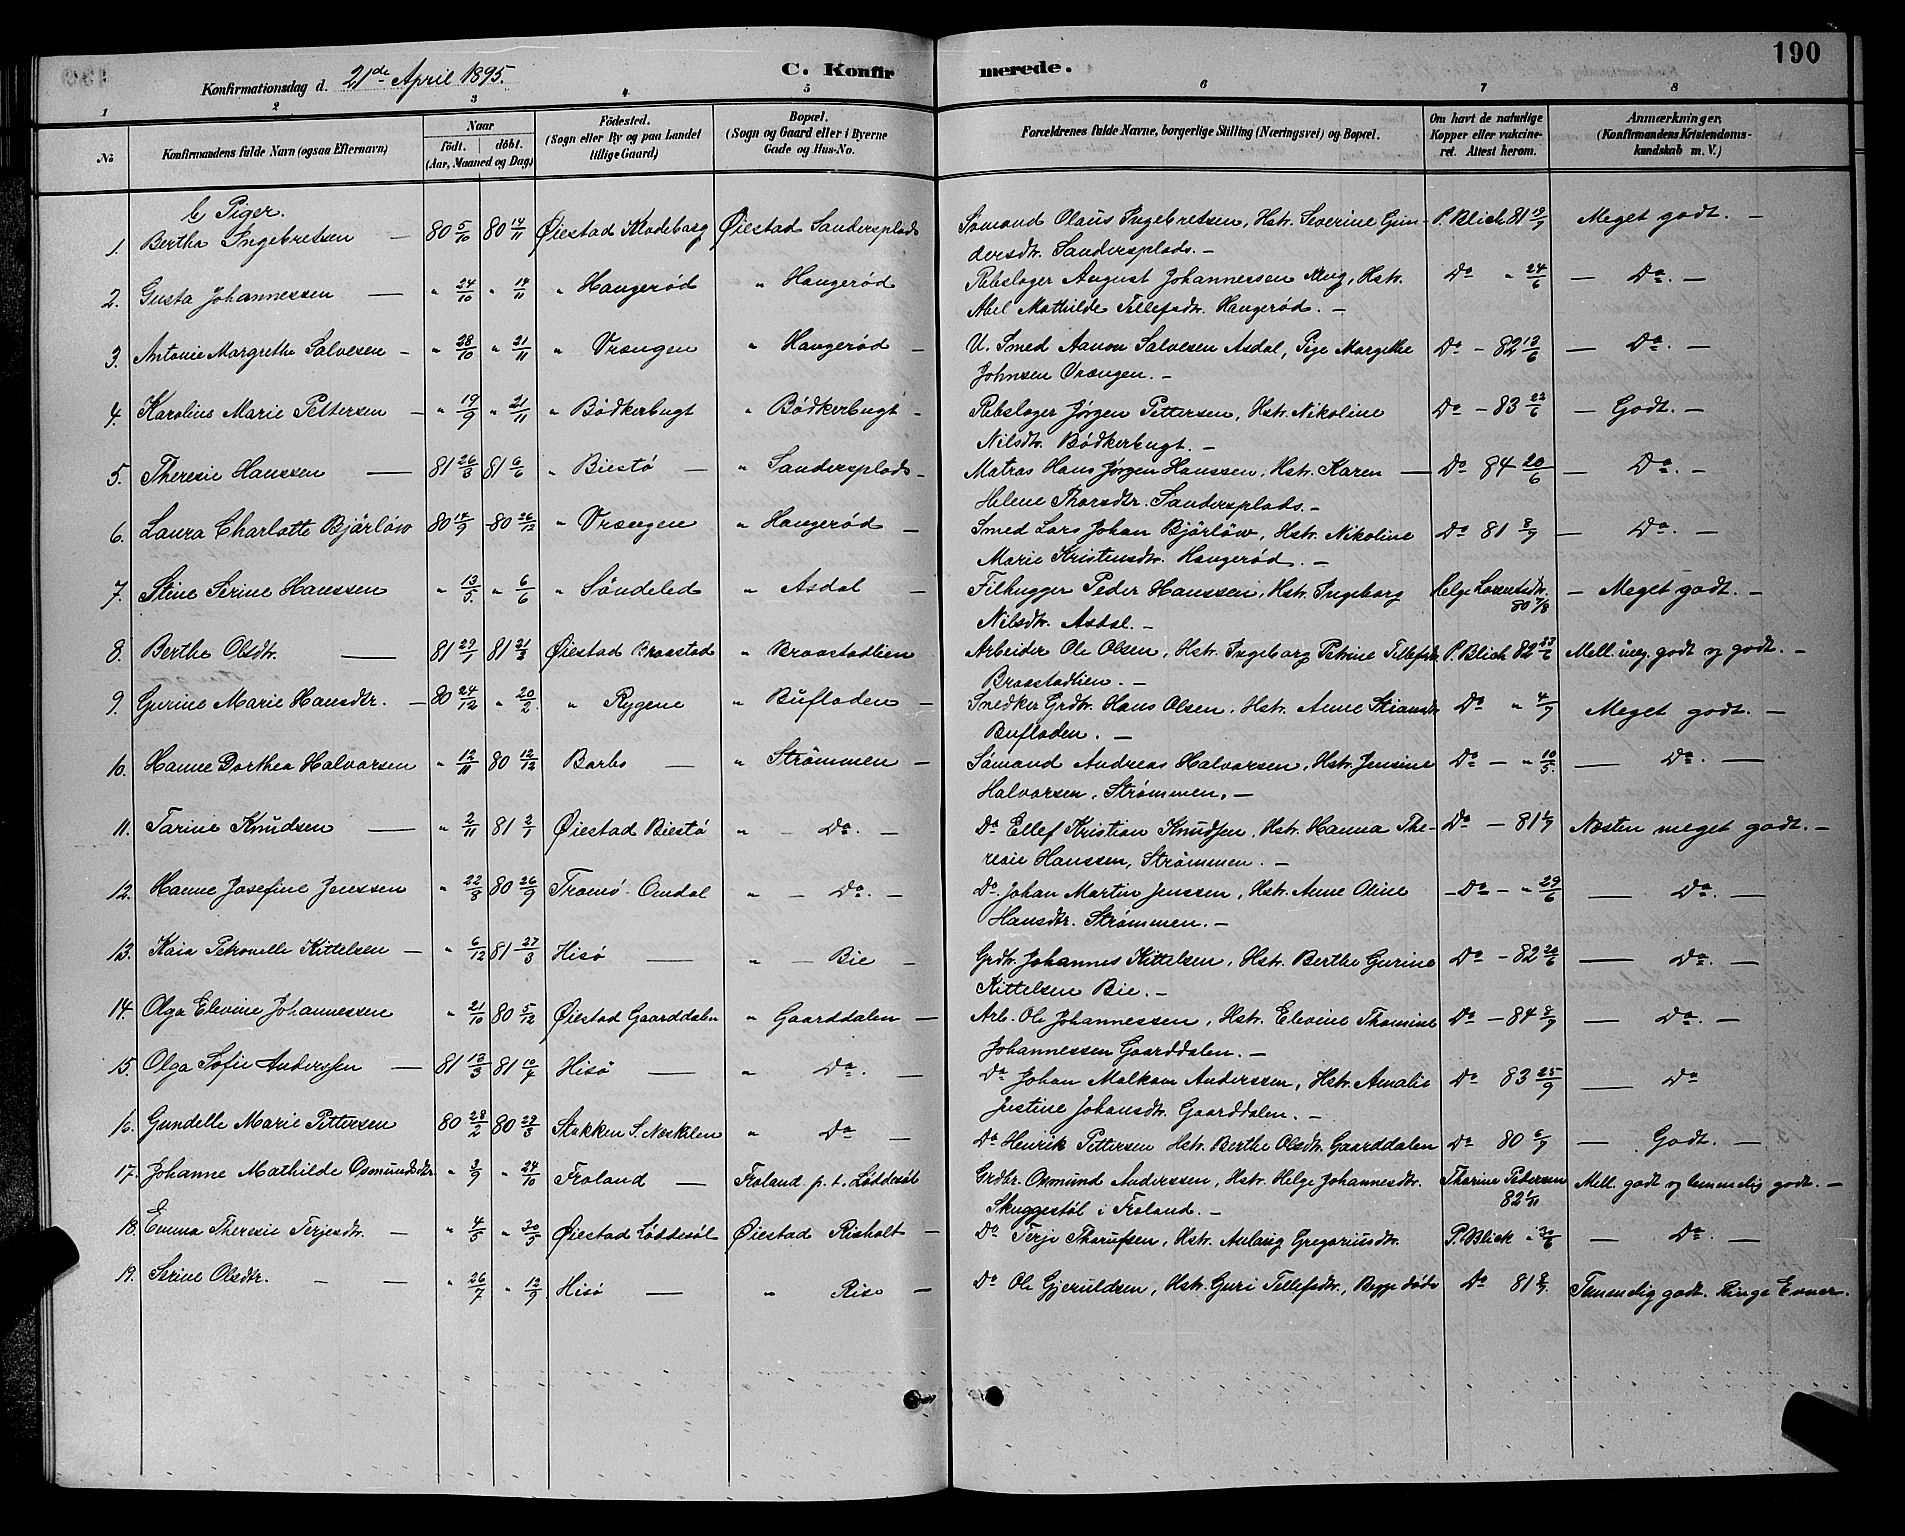 190
Konfirmationsdag d. 21de April 1895.
C. Konfirmerede.
1 2 3 4 5 6 7 8
No
Konfirmandens fulde Navn (ogsaa Efternavn)
Naar
født. døbt.
(Aar, Maaned og Dag)
Fødested.
(Sogn eller By og paa Landet
tillige Gaard)
Bopæl.
(Sogn og Gaard eller i Byerne
Gade og Hus-No.
Forældrenes fulde Navne, borgerlige Stilling (Næringsvei) og Bopæl.
Om havt de naturlige
Kopper eller vakcine-
ret. Attest herom.
Anmærkninger,
(Konfirmandens Kristendoms-
kundskab m. V.)
b Piger.
1. Bertha Ingebretsen — 80 5/10 80 14/11 Øiestad Klodeborg Øiestad Sandersplads Sømand Olaus Ingebretsen, Hstr. Severine Gun- P. Blich 81 19/9 Meget godt. —
dersdtr. Sandersplads. —
2. Gusta Johannessen — " 24/10 " 14/11 " Haugerød " Haugerød Rebslager August Johannessen Aug, Hstr. Do " 24/6 — Do. —
Abel Mathilde Tellefsdtr. Haugerød. —
3. Antonie Margrethe Salvesen — " 28/10 " 21/11 " Vrængen " Haugerød — U. Smed Aanon Salvesen Asdal, Pige Margethe Do — 82 13/6 — Do. —
Johnsen Vrængen. —
4. Karoline Marie Pettersen — " 19/9 " 21/11 " Bødkerbugt " Bødkerbugt — Rebslager Jørgen Pettersen, Hstr. Nikoline Do — 83 22/6 — Godt. —
Nilsdtr. Bødkerbugt. —
5. Theresie Hanssen — 81 26/3 81 6/6 " Biestø — " Sandersplads — Matros Hans Jørgen Hanssen, Hstr. Karen — Do 84 20/6 — Do. —
Helene Thorsdtr. Sandersplads. —
6. Laura Charlotte Bjärløw 80 14/9 80 26/12 " Vrængen " Haugerød — Smed Lars Johan Bjärløw, Hstr. Nikoline Do 81 8/9 — Do. —
Marie Kristensdtr. Haugerød. —
7. Stine Serine Hanssen " 13/5 " 6/6 " Søndeled " Asdal — Tilhugger Peder Hanssen, Hstr. Ingeborg Helge Lorentsdtr. — Meget godt. —
Nilsdtr. Asdal. — 80 7/8
8. Berthe Olsdtr. — 81 29/1 81 21/3 Øiestad Braastad " Braastadlien Arbeider Ole Olsen, Hstr. Ingeborg Petrine Tellefsdtr. P. Blich 82 23/6 Mell. meg. godt og godt. —
Braastadlien. —
9. Gurine Marie Hansdtr. — 80 24/12 " 20/2 " Rygene " Bufladen — Snedker Grdbr. Hans Olsen, Hstr. Anne Stiansdtr. Do " 4/9 Meget godt. —
Bufladen. —
10. Hanne Dorthea Halvorsen " 12/11 80 12/12 Barbo — " Strømmen — Sømand Andreas Halvorsen, Hstr. Jensine Do — " 10/5 — Do. —
Halvorsen, Strømmen. —
11. Tarine Knudsen — " 2/11 81 2/1 Øiestad Biestø " — Do. — Do Ellef Kristian Knudsen, Hstr. Hanna The- Do — 81 1/9 Næsten meget godt. —
resie Hanssen, Strømmen. —
12. Hanne Josefine Jenssen " 22/8 80 26/9 Tromø Omdal " — Do. — Do Johan Martin Jenssen, Hstr. Anne Oline — Do — " 29/6 — Do. —
Hansdtr. Strømmen. —
13. Kaia Petronelle Kittelsen — " 6/12 81 27/3 Hisø — " — Bie — Grdbr. Johannes Kittelsen, Hstr. Berthe Gurine Do — 82 20/6 — Do. —
Kittelsen Bie. —
14. Olga Elevine Johannessen " 21/10 80 5/12 Øiestad Gaarddalen " Gaarddalen — Arb. Ole Johannessen, Hstr. Elevine Thomine Do — 84 8/9 — Do. —
Johannessen Gaarddalen. —
15. Olga Sofie Anderssen — 81 13/3 81 10/4 Hisø — " Do. — Do Johan Malkom Anderssen, Hstr. Amalie Do 83 25/9 — Do
Justine Johansdtr. Gaarddalen. —
16. Gundelle Marie Pettersen 80 28/2 80 29/3 Stokken S. Neskilen " Do — Do Henrik Pettersen Hstr. Berthe Olsdtr. Gaarddalen Do 80 6/9 — Godt. —
17. Johanne Mathilde Osmundsdtr. " 3/9 " 24/10 Froland — Froland p.t. Løddesøl Grdbr. Osmund Anderssen, Hstr. Helge Johannesdtr. Thorine Pedersen Mell. godt og temmelig godt. —
Skuggestøl i Froland. — 82 1/11
18. Emma Theresie Terjesdtr. — " 4/5 " 30/5 Øiestad Løddesøl Øiestad Risholt — Do Terje Thorufsen, Hstr. Aslaug Gregoriusdtr. P. Blick " 30/6 — Do. —
19. Serine Olsdtr. — — " 26/7 " 12/9 Hisø — " Rise — Do Ole Gjeruldsen, Hstr. Guri Tellefsdtr., Begge døde Do 81 8/9 Temmelig godt. Ringe Evner.